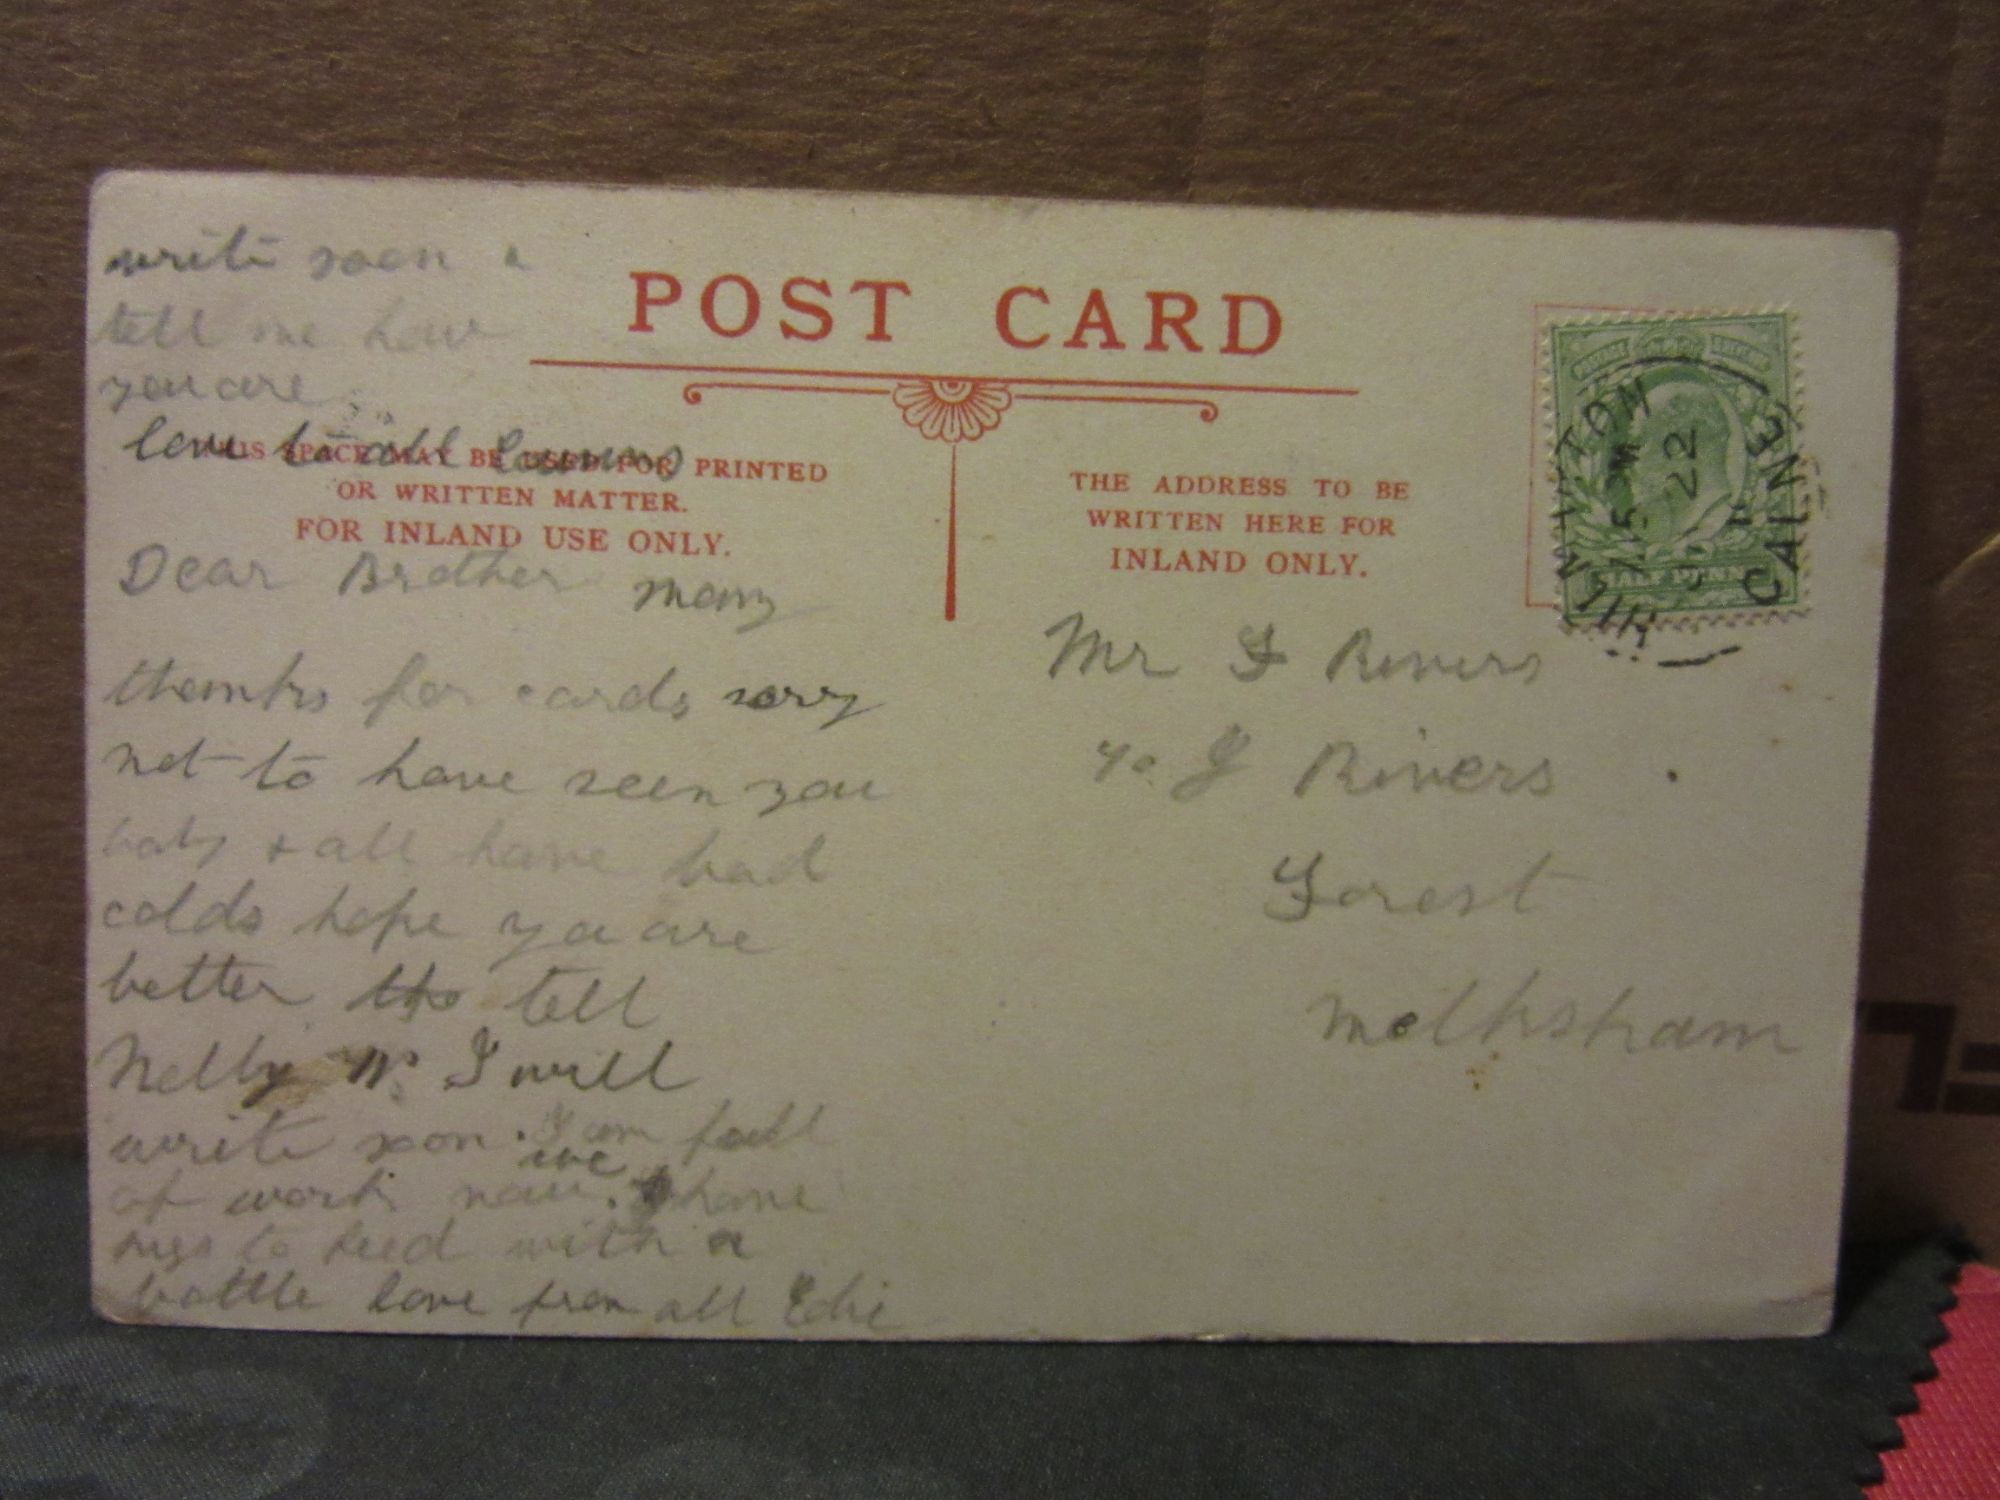 write soon &
tell me how
you are.
love to all
POST CARD
THIS SPACE MAY BE USED FOR PRINTED
OR WRITTEN MATTER.
FOR INLAND USE ONLY.
THE ADDRESS TO BE
WRITTEN HERE FOR
INLAND ONLY.
HILMARTON
CALNE
7 15 PM
22
HALF PENNY
Dear Brother many
thanks for cards sorry
not to have seen you
baby & all have bad
colds hope you are
better tell
Nelly I will
write soon. I am full
of work now. we have
pigs to feed with a
bottle love from all Edie
Mr F Rivers
c/o J Rivers
Forest
Melksham